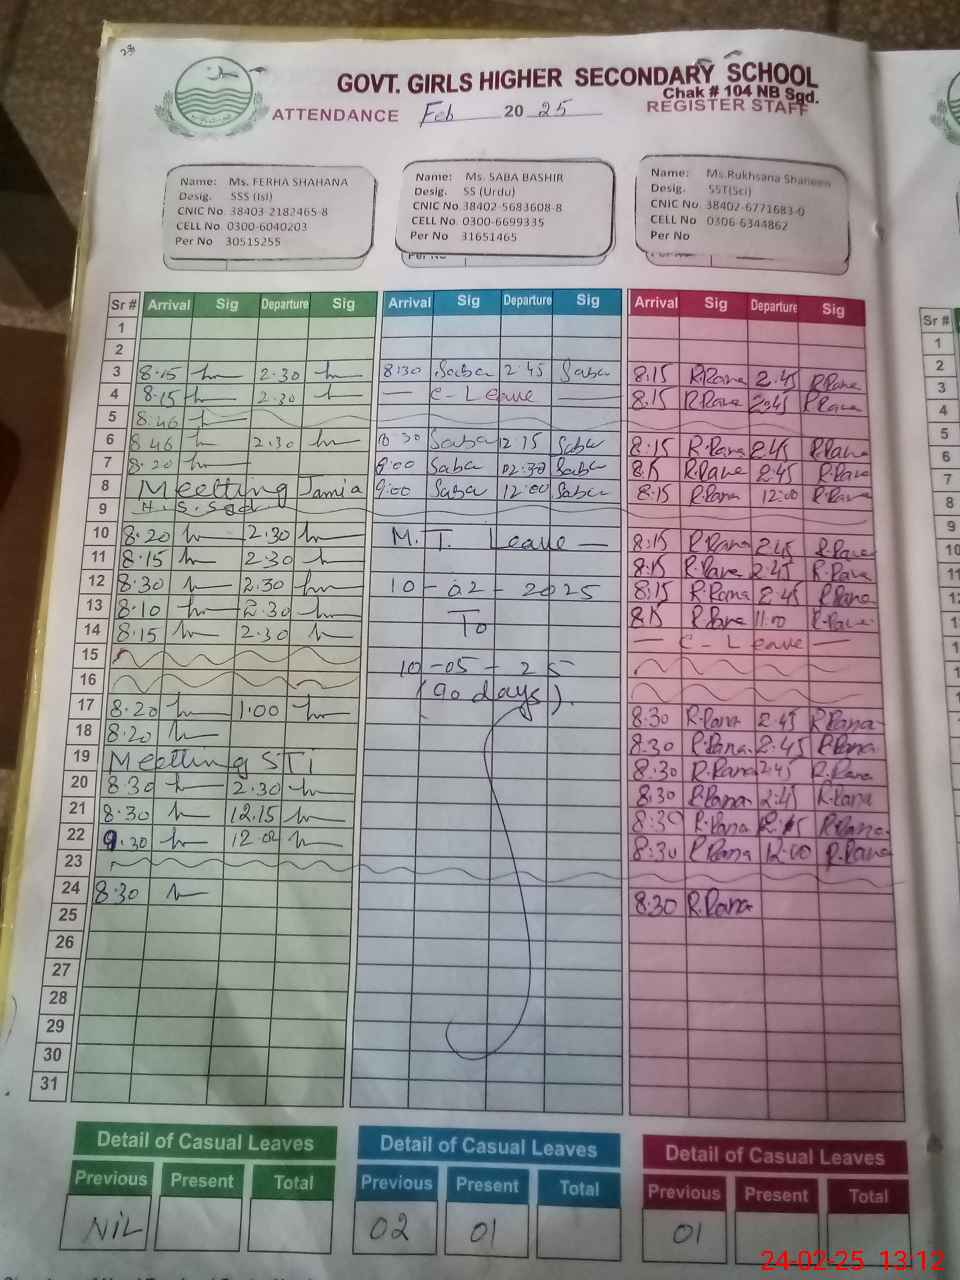 23
GOVT. GIRLS HIGHER SECONDARY SCHOOL
Chak # 104 NB Sgd.
ATTENDANCE Feb 20 25 REGISTER STAFF
Name: Ms. FERHA SHAHANA
Desig. SSS (Isl)
CNIC No. 38403-2182465-8
CELL No. 0300-6040203
Per No 30515255
Name: Ms. SABA BASHIR
Desig. SS (Urdu)
CNIC No. 38402-5683608-8
CELL No. 0300-6699335
Per No 31651465
Per No
Name: Ms.Rukhsana Shaheen
Desig. SST(Sci)
CNIC No. 38402-6771683-0
CELL No 0306-6344862
Per No
Sr # Arrival Sig Departure Sig Arrival Sig Departure Sig Arrival Sig Departure Sig Sr #
1 1
2 2
3 8.15 2.30 8:30 Saba 2.45 Saba 8.15 R.Rana 2.45 R.Rana 3
4 8.15 2.30 — C-Leave — 8.15 R.Rana 2.45 R.Rana 4
5 8.46 5
6 8.46 2.30 Saba 12.15 Saba 8.15 R.Rana 2.45 R.Rana 6
7 8.20 9:00 Saba 02.30 Saba 8.15 R.Rana 2.45 R.Rana 7
8 Meetting Jamia 9:00 Saba 12:00 Saba 8.15 R.Rana 12:00 R.Rana 8
9 H.S.Sgd 9
10 8.20 2.30 M.T. Leave — 8.15 R.Rana 2.45 R.Rana 10
11 8.15 2.30 8.15 R.Rana 2.45 R.Rana
12 8.30 2.30 10-02-2025 8.15 R.Rana 2.45 R.Rana
13 8.10 2.30 To 8.15 R.Rana 11.00 R.Rana
14 8.15 2.30 — C-Leave —
15 10-05-25
16 (90 days).
17 8.20 1.00 8.30 R.Rana 2.45 R.Rana
18 8.20 8.30 R.Rana 2.45 R.Rana
19 Meetting STi 8.30 R.Rana 2.45 R.Rana
20 8.30 2.30 8.30 R.Rana 2.45 R.Rana
21 8.30 12.15 8.30 R.Rana 2.45 R.Rana
22 9.30 8.30 R.Rana 12.00 R.Rana
23
24 8.30 8.30 R.Rana
25
26
27
28
29
30
31
Detail of Casual Leaves Detail of Casual Leaves Detail of Casual Leaves
Previous Present Total Previous Present Total Previous Present Total
NiL 02 01 01
24-02-25 13:12